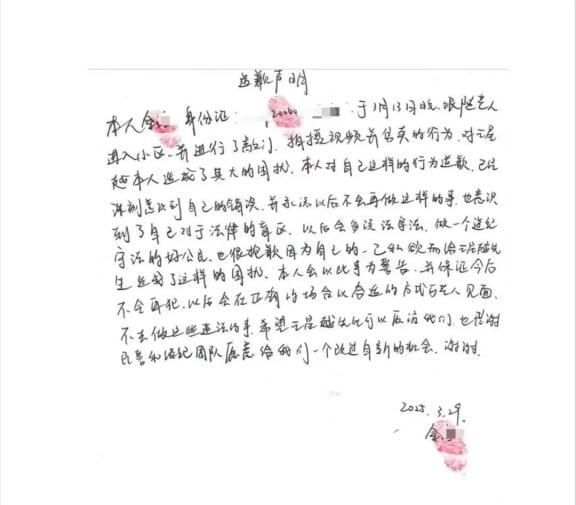 道歉声明
本人金 身份证: 200604 .于3月13日晚.跟随艺人
进入小区.并进行了敲门、拍摄视频并售卖的行为.对王星
越本人造成了莫大的困扰.本人对自己这样的行为道歉.已经
深刻意识到自己的错误.并永远以后不会再做这样的事.也意识
到了自己对于法律的盲区.以后会多读法守法.做一个遵纪
守法的好公民.也很抱歉因为自己的一己私欲而给王星越先
生造成了这样的困扰.本人会以此事为警告.并保证今后
不会再犯.以后会在正确的场合以合适的方式与艺人见面.
不去做这些违法的事.希望王星越先生可以原谅我们.也感谢
民警和经纪团队愿意给我们一个改过自新的机会.谢谢.
2025.3.29.
金